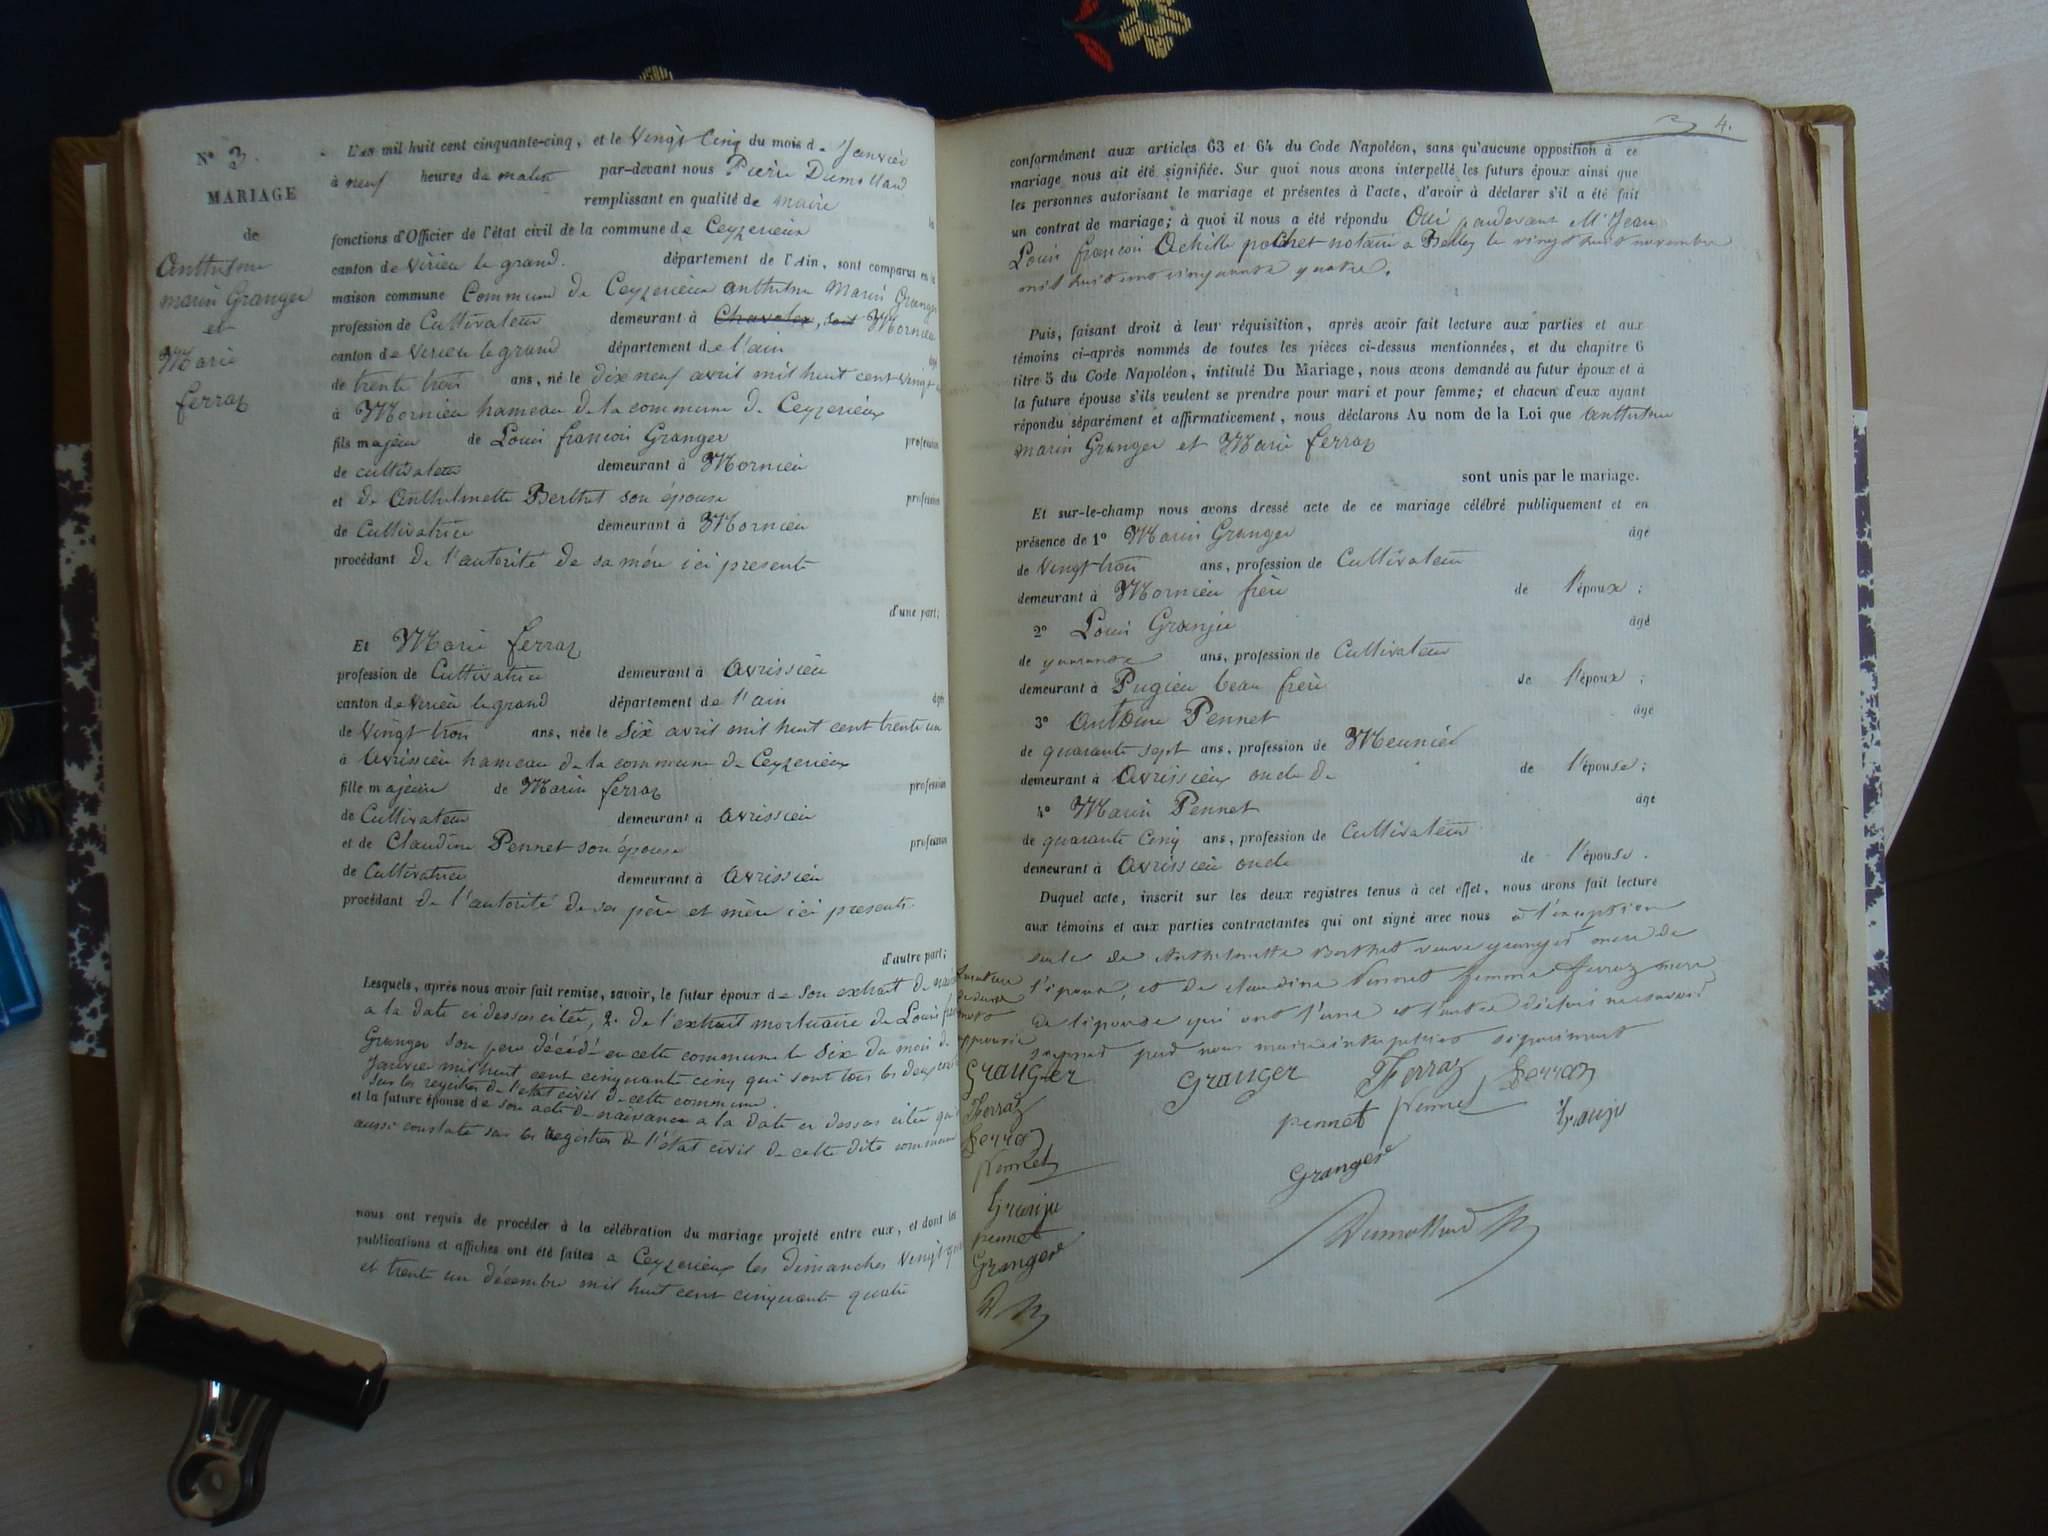 N° 3.
MARIAGE
de
Anthelme
marin Granger
et
Marie
ferraz
L'an mil huit cent cinquante-cinq, et le Vingt Cinq du mois de Janvier
à neuf heures du matin par-devant nous Pierre Dumollard
remplissant en qualité de maire
fonctions d'Officier de l'état civil de la commune de Ceyzerieux
canton de Virieu le grand. département de l'Ain, sont comparus en la
maison commune Commune de Ceyzerieux anthelme Marin Granger
profession de Cultivateur demeurant à Mornieu
canton de Virieu le grand département de l'ain
de trente trois ans, né le dix neuf avril mil huit cent vingt
à Mornieu hameau de la commune de Ceyzerieux
fils majeur de Louis francois Granger profession
de cultivateur demeurant à Mornieu
et de Anthelmette Berthet son épouse profession
de Cultivatrice demeurant à Mornieu
procédant de l'autorité de sa mère ici presente
d'une part;
Et Marie ferraz
profession de Cultivatrice demeurant à Avrissieu
canton de Virieu le grand département de l'ain âgée
de Vingt trois ans, née le Six avril mil huit cent trente un
à Avrissieu hameau de la commune de Ceyzerieux
fille majeure de Marin ferraz profession
de Cultivateur demeurant à Avrissieu
et de Claudine Pennet son épouse profession
de Cultivatrice demeurant à Avrissieu
procédant de l'autorité de ses père et mère ici presents.
d'autre part;
Lesquels, après nous avoir fait remise, savoir, le futur époux de son extrait de
a la date ci dessus citée, 2° de l'extrait mortuaire de Louis
Granger son pere décédé en cette commune le Six du mois de
Janvier mil huit cent cinquante cinq qui sont tous les deux
sur les registres de l'état civil de cette commune.
et la future épouse de son acte de naissance a la date ci dessus citée
aussi constaté sur les Registres de l'état civil de cette dite commune
nous ont requis de procéder à la célébration du mariage projeté entre eux, et dont les
publications et affiches ont été faites a Ceyzerieux les dimanches Vingt
et trente un décembre mil huit cent cinquante quatre
4.
conformément aux articles 63 et 64 du Code Napoléon, sans qu'aucune opposition à ce
mariage nous ait été signifiée. Sur quoi nous avons interpellé les futurs époux ainsi que
les personnes autorisant le mariage et présentes à l'acte, d'avoir à déclarer s'il a été fait
un contrat de mariage; à quoi il nous a été répondu Oui pardevant Mr Jean
Louis francois Achille pochet notaire a Belley le vingt huit novembre
mil huit cent cinquante quatre.
Puis, faisant droit à leur réquisition, après avoir fait lecture aux parties et aux
témoins ci-après nommés de toutes les pièces ci-dessus mentionnées, et du chapitre 6
titre 5 du Code Napoléon, intitulé Du Mariage, nous avons demandé au futur époux et à
la future épouse s'ils veulent se prendre pour mari et pour femme; et chacun d'eux ayant
répondu séparément et affirmativement, nous déclarons Au nom de la Loi que Anthelme
marin Granger et Marie ferraz
sont unis par le mariage.
Et sur-le-champ nous avons dressé acte de ce mariage célébré publiquement et en
présence de 1° Marin Granger âgé
de Vingt trois ans, profession de Cultivateur
demeurant à Mornieu frère de l'époux;
2° Louis Granju âgé
de quarante ans, profession de Cultivateur
demeurant à Pugieu beau frère de l'époux;
3° Antoine Pennet âgé
de quarante sept ans, profession de Meunier
demeurant à Avrissieux oncle de de l'épouse;
4° Marin Pennet âgé
de quarante Cinq ans, profession de Cultivateur
demeurant à Avrissieu oncle de l'épouse.
Duquel acte, inscrit sur les deux registres tenus à cet effet, nous avons fait lecture
aux témoins et aux parties contractantes qui ont signé avec nous à l'exception
seule de Anthelmette Berthet veuve granger mere de
l'époux, et de claudine Pennet femme ferraz mere
de l'épouse qui ont l'une et l'autre déclaré ne savoir
Granger Granger Ferraz Ferraz
Ferraz pennet Pennet Granju
Ferraz
Pennet
Granger
Granju
pennet
Granger
Dumollard